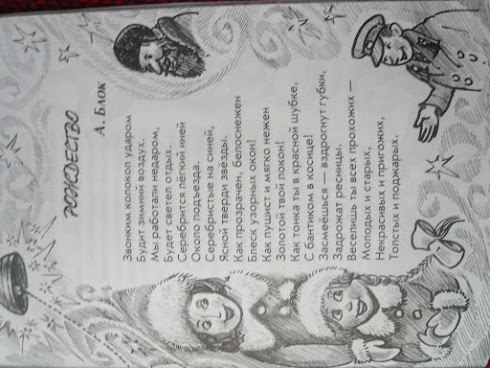 РОЖДЕСТВО
А. Блок
Звонким колокол ударом
Будит зимний воздух.
Мы работали недаром,
Будет светел отдых.
Серебрится лёгкий иней
Около подъезда.
Серебристые на синей,
Ясной тверди звезды.
Как прозрачен, белоснежен
Блеск узорных окон!
Как пушист и мягко нежен
Золотой твой локон!
Как тонка ты в красной шубке,
С бантиком в косице!
Засмеёшься — вздрогнут губки,
Задрожат ресницы.
Веселишь ты всех прохожих —
Молодых и старых,
Некрасивых и пригожих,
Толстых и поджарых.